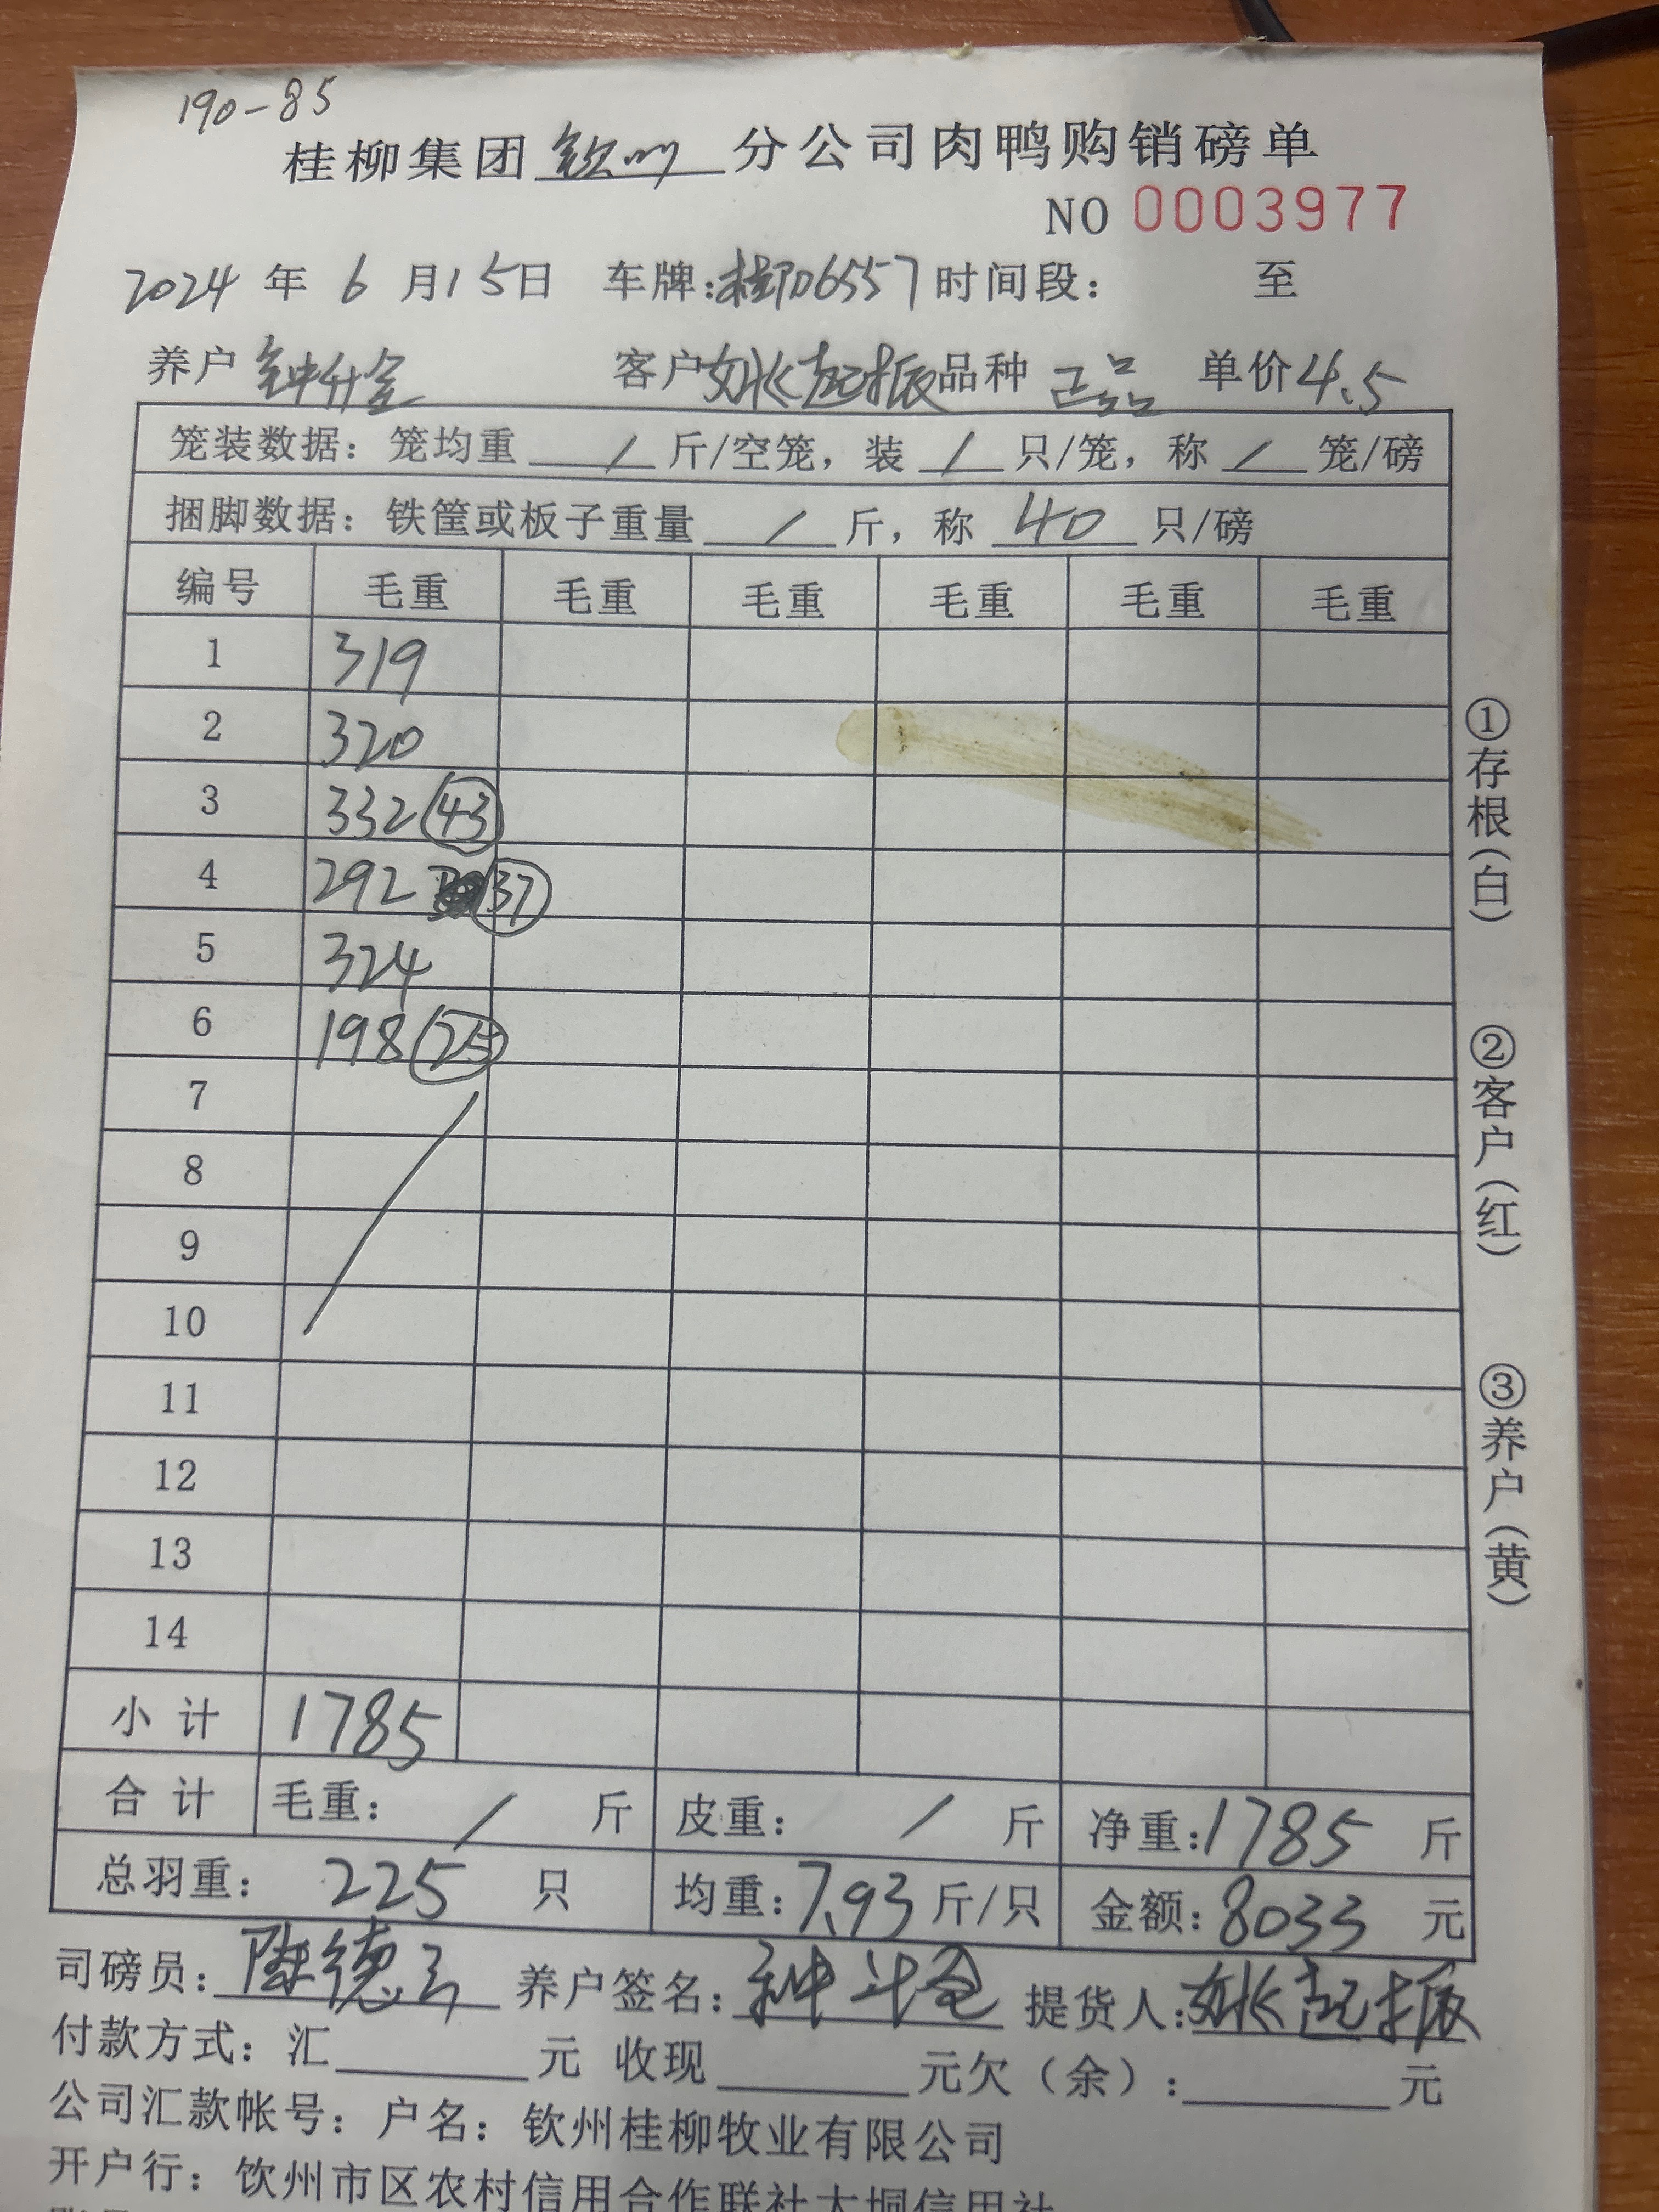 190-85
桂柳集团 钦州 分公司肉鸭购销磅单
NO 0003977
2024 年 6 月 15 日 车牌: 06557 时间段: 至
养户 钟 客户 起振 品种 正品 单价 4.5
笼装数据: 笼均重 / 斤/空笼, 装 / 只/笼, 称 / 笼/磅
捆脚数据: 铁筐或板子重量 / 斤, 称 40 只/磅
编号 毛重 毛重 毛重 毛重 毛重 毛重
1 319
2 320
3 332 43
4 292 37
5 324
6 198 25
7
8
9
10
11
12
13
14
小计 1785
合计 毛重: / 斤 皮重: / 斤 净重: 1785 斤
总羽重: 225 只 均重: 7.93 斤/只 金额: 8033 元
司磅员: 陈德 养户签名: 钟 提货人: 起振
付款方式: 汇 元 收现 元欠(余): 元
公司汇款帐号: 户名: 钦州桂柳牧业有限公司
开户行: 钦州市区农村信用合作联社大垌信用社
①存根(白)
②客户(红)
③养户(黄)